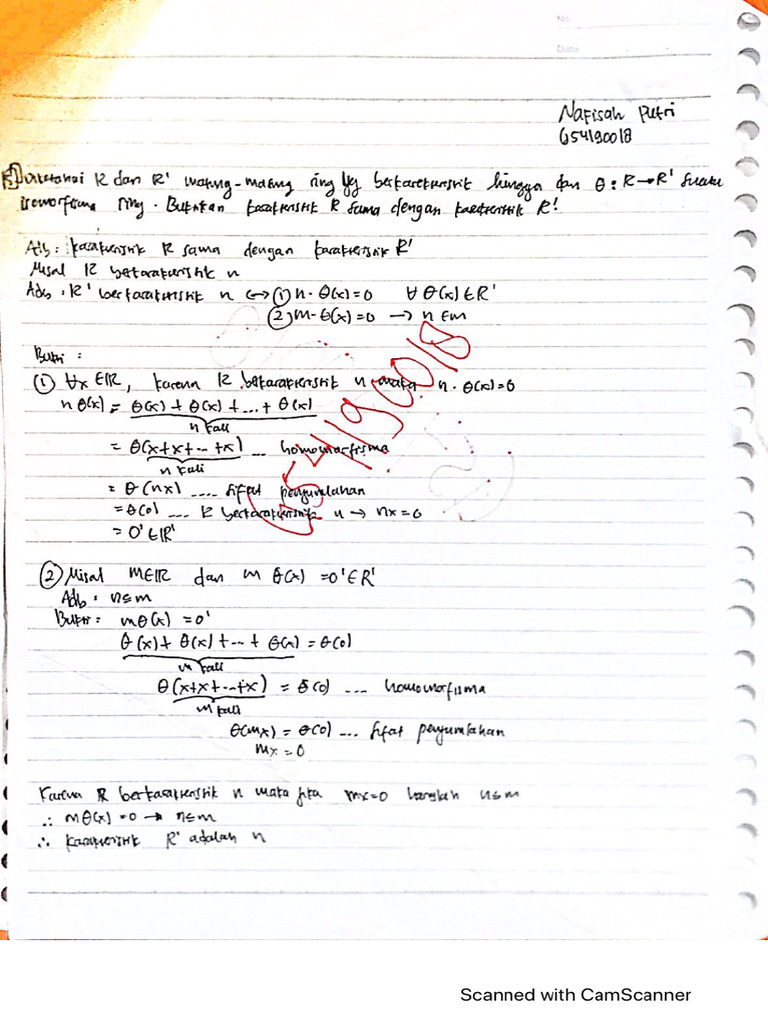 No
Date
Nafisah Putri
654190018
5) Diketahui R dan R' masing-masing ring yg berkarakteristik hingga dan θ : R → R' suatu
isomorfisma ring. Buktikan karakteristik R sama dengan karakteristik R'!
Adb : karakteristik R sama dengan karakteristik R'
Misal R berkarakteristik n
Adb : R' berkarakteristik n ↔ ① n · θ(x) = 0 ∀ θ(x) ∈ R'
② m · θ(x) = 0 → n ≤ m
Bukti :
① ∀x ∈ IR, karena R berkarakteristik n maka n · θ(x) = 0
n θ(x) = θ(x) + θ(x) + ... + θ(x)
n kali
= θ(x+x+...+x) ... homomorfisma
n kali
= θ(nx) .... sifat penjumlahan
= θ(0) ... R berkarakteristik n → nx = 0
= 0' ∈ IR'
654190018
② Misal M ∈ IR dan m θ(x) = 0' ∈ R'
Adb : n ≤ m
Bukti : m θ(x) = 0'
θ(x) + θ(x) + ... + θ(x) = θ(0)
m kali
θ(x+x+...+x) = θ(0) ... homomorfisma
m kali
θ(mx) = θ(0) ... sifat penjumlahan
mx = 0
Karena R berkarakteristik n maka jika mx = 0 haruslah n ≤ m
∴ m θ(x) = 0 → n ≤ m
∴ karakteristik R' adalah n
Scanned with CamScanner